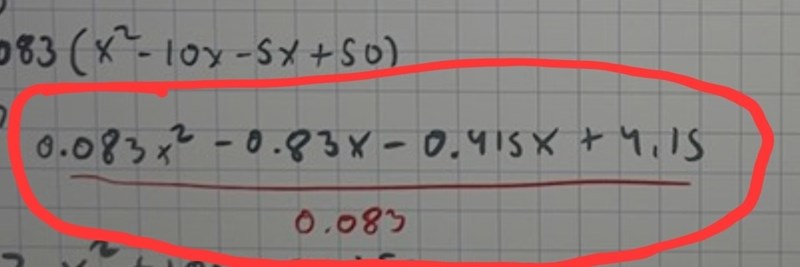 083 (x² - 10x - 5x + 50)
0.083x² - 0.83x - 0.415x + 4.15
0.083